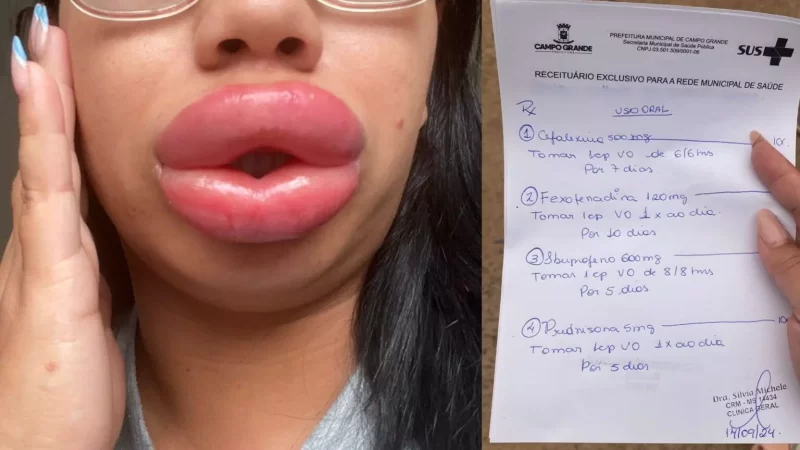 CAMPO GRANDE
PREFEITURA
PREFEITURA MUNICIPAL DE CAMPO GRANDE
Secretaria Municipal de Saúde Pública
CNPJ:03.501.509/0001-06
SUS
RECEITUÁRIO EXCLUSIVO PARA A REDE MUNICIPAL DE SAÚDE
Rx USO ORAL
1 Cefalexina 500mg
Tomar 1cp VO de 6/6hs
Por 7 dias
2 Fexofenadina 120mg
Tomar 1cp VO 1x ao dia.
Por 10 dias
3 Ibuprofeno 600mg
Tomar 1cp VO de 8/8hs
Por 5 dias
4 Prednisona 5mg
Tomar 1cp VO 1x ao dia
Por 5 dias
Dra. Silvia Michele
CRM - MS 14434
CLINICA GERAL
/09/24